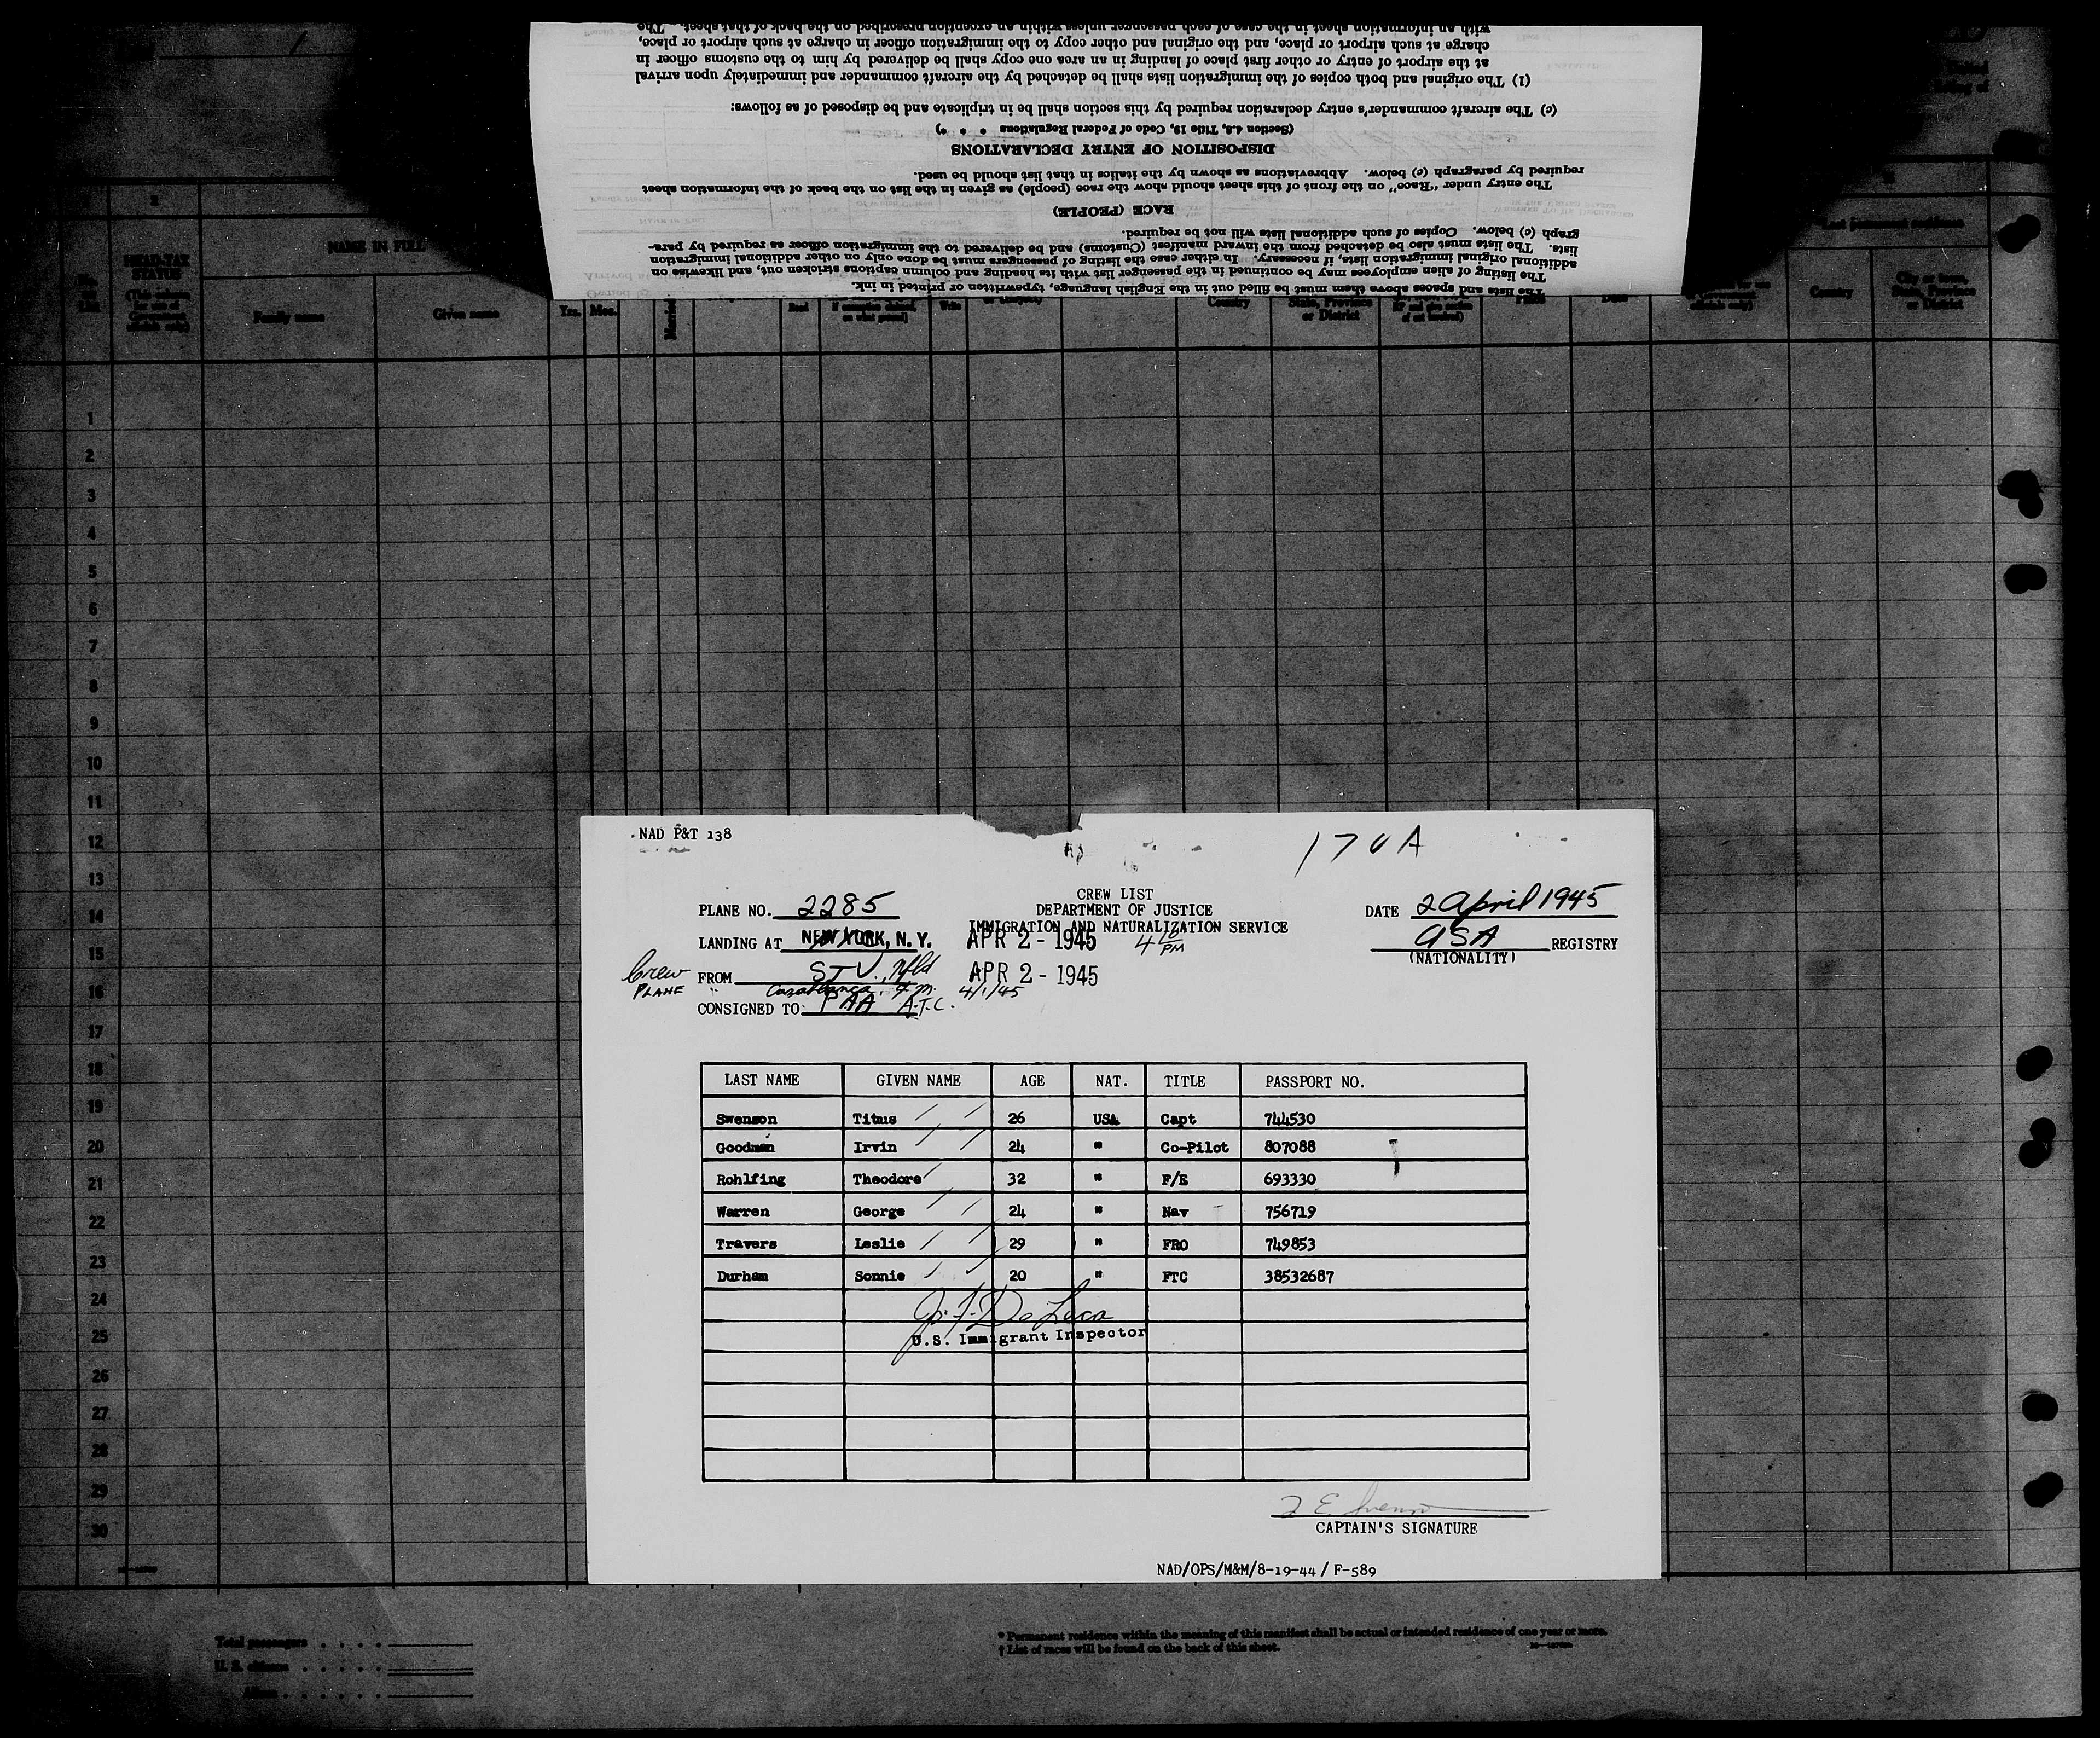 with an information sheet in the case of each passenger unless within an exception prescribed on the back of that sheet. The
charge at such airport or place, and the original and other copy to the immigration officer in charge at such airport or place,
at the airport of entry or other first place of landing in an area one copy shall be delivered by him to the customs officer in
(1) The original and both copies of the immigration lists shall be detached by the aircraft commander and immediately upon arrival
(c) The aircraft commander's entry declaration required by this section shall be in triplicate and be disposed of as follows:
(Section 4.8, Title 19, Code of Federal Regulations * * *)
DISPOSITION OF ENTRY DECLARATIONS
required by paragraph (c) below. Abbreviations as shown by the italics in that list should be used.
The entry under "Race" on the front of this sheet should show the race (people) as given in the list on the back of the information sheet
RACE (PEOPLE)
graph (c) below. Copies of such additional lists will not be required.
lists. The lists must also be detached from the inward manifest (Customs) and be delivered to the immigration officer as required by para-
additional original immigration lists, if necessary. In either case the listing of passengers must be done only on other additional immigration
The listing of alien employees may be continued in the passenger list with its heading and column captions stricken out, and likewise on
The lists and spaces above them must be filled out in the English language, typewritten or printed in ink.
HEAD-TAX STATUS
(This column for use of Government officials only)
NAME IN FULL
Family name Given name Yrs. Mos.
Read Write
Country State, Province or District
Country City or town, State, Province or District
1
2
3
4
5
6
7
8
9
10
11
12
13
14
15
16
17
18
19
20
21
22
23
24
25
26
27
28
29
30
NAD P&T 138
CREW LIST
DEPARTMENT OF JUSTICE
IMMIGRATION AND NATURALIZATION SERVICE
PLANE NO. 2285 DATE 2 April 1945
LANDING AT NEW YORK, N. Y. APR 2 - 1945 PM USA REGISTRY
(NATIONALITY)
Crew FROM Nfld APR 2 - 1945
PLANE " Casablanca, 4/1/45
CONSIGNED TO PAA A.T.C.
LAST NAME GIVEN NAME AGE NAT. TITLE PASSPORT NO.
Swenson Titus 26 USA Capt 744530
Goodman Irvin 24 " Co-Pilot 807088
Rohlfing Theodore 32 " F/E 693330
Warren George 24 " Nav 756719
Travers Leslie 29 " FRO 749853
Durham Sonnie 20 " FTC 38532687
De Luca
U.S. Immigrant Inspector
CAPTAIN'S SIGNATURE
NAD/OPS/M&M/8-19-44/F-589
Total passengers
U. S. citizens
Aliens
* Permanent residence within the meaning of this manifest shall be actual or intended residence of one year or more.
† List of races will be found on the back of this sheet.